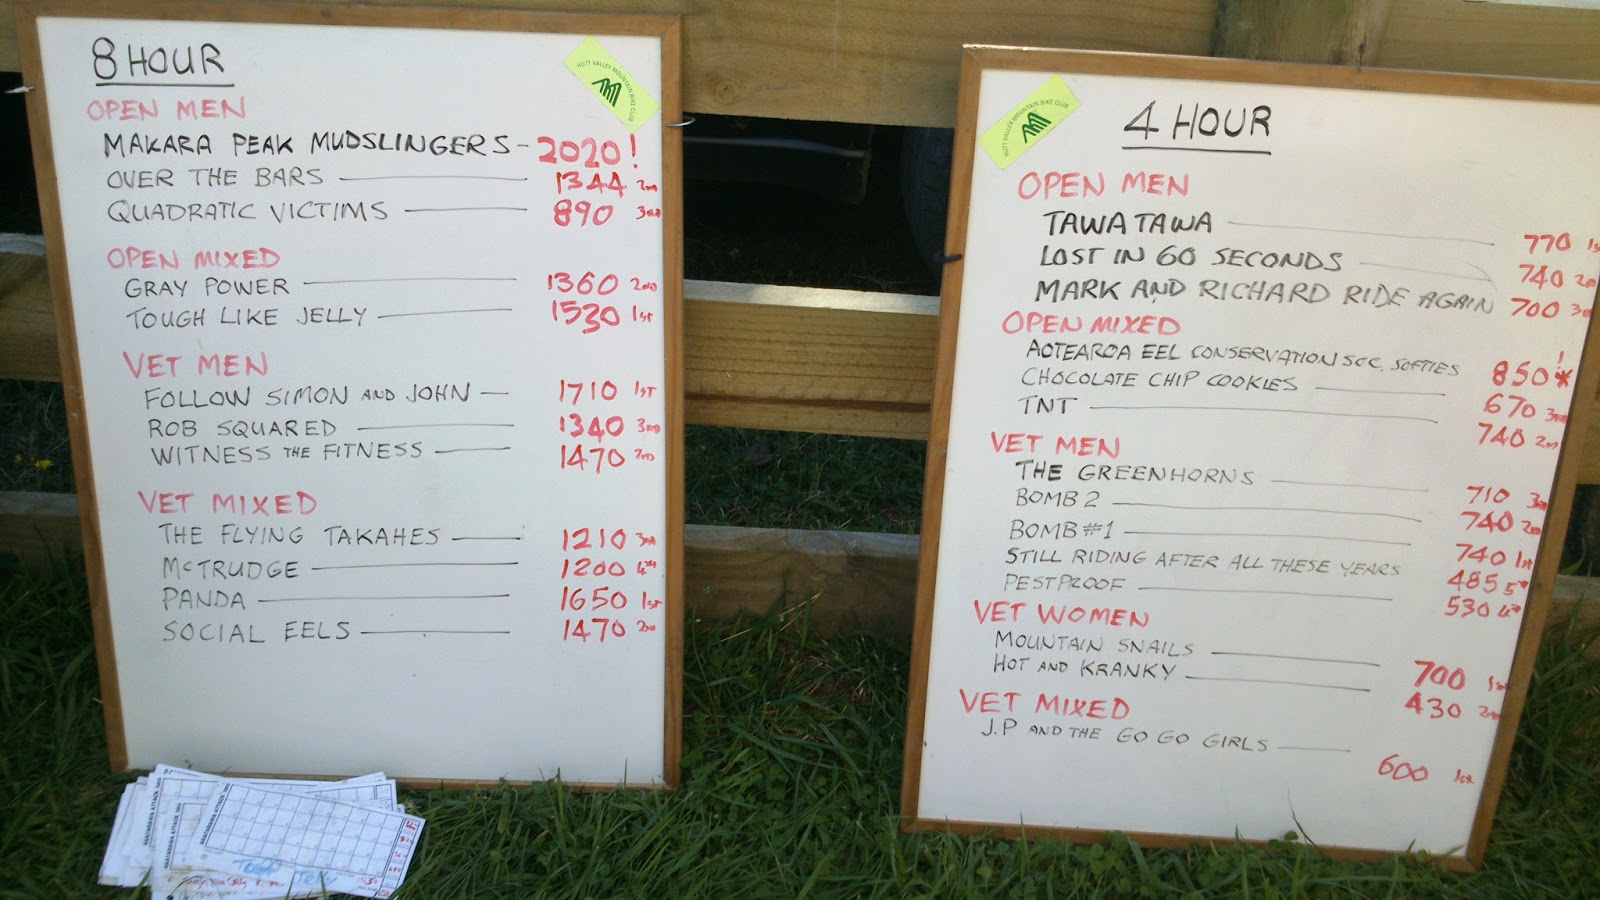 8 HOUR
HUTT VALLEY MOUNTAIN BIKE CLUB
OPEN MEN
MAKARA PEAK MUDSLINGERS - 2020!
OVER THE BARS 1344 2ND
QUADRATIC VICTIMS 890 3RD
OPEN MIXED
GRAY POWER 1360 2ND
TOUGH LIKE JELLY 1530 1ST
VET MEN
FOLLOW SIMON AND JOHN 1710 1ST
ROB SQUARED 1340 3RD
WITNESS THE FITNESS 1470 2ND
VET MIXED
THE FLYING TAKAHES 1210 3RD
MCTRUDGE 1200 4TH
PANDA 1650 1ST
SOCIAL EELS 1470 2ND
HUTT VALLEY MOUNTAIN BIKE CLUB
4 HOUR
OPEN MEN
TAWA TAWA 770 1ST
LOST IN 60 SECONDS 740 2ND
MARK AND RICHARD RIDE AGAIN 700 3RD
OPEN MIXED
AOTEAROA EEL CONSERVATION SOC. SOFTIES 850!*
CHOCOLATE CHIP COOKIES 670 3RD
TNT 740 2ND
VET MEN
THE GREENHORNS 710 3RD
BOMB 2 740 2ND
BOMB #1 740 1ST
STILL RIDING AFTER ALL THESE YEARS 485 5TH
PESTPROOF 530 4TH
VET WOMEN
MOUNTAIN SNAILS 700 1ST
HOT AND KRANKY 430 2ND
VET MIXED
J.P AND THE GO GO GIRLS 600 1ST